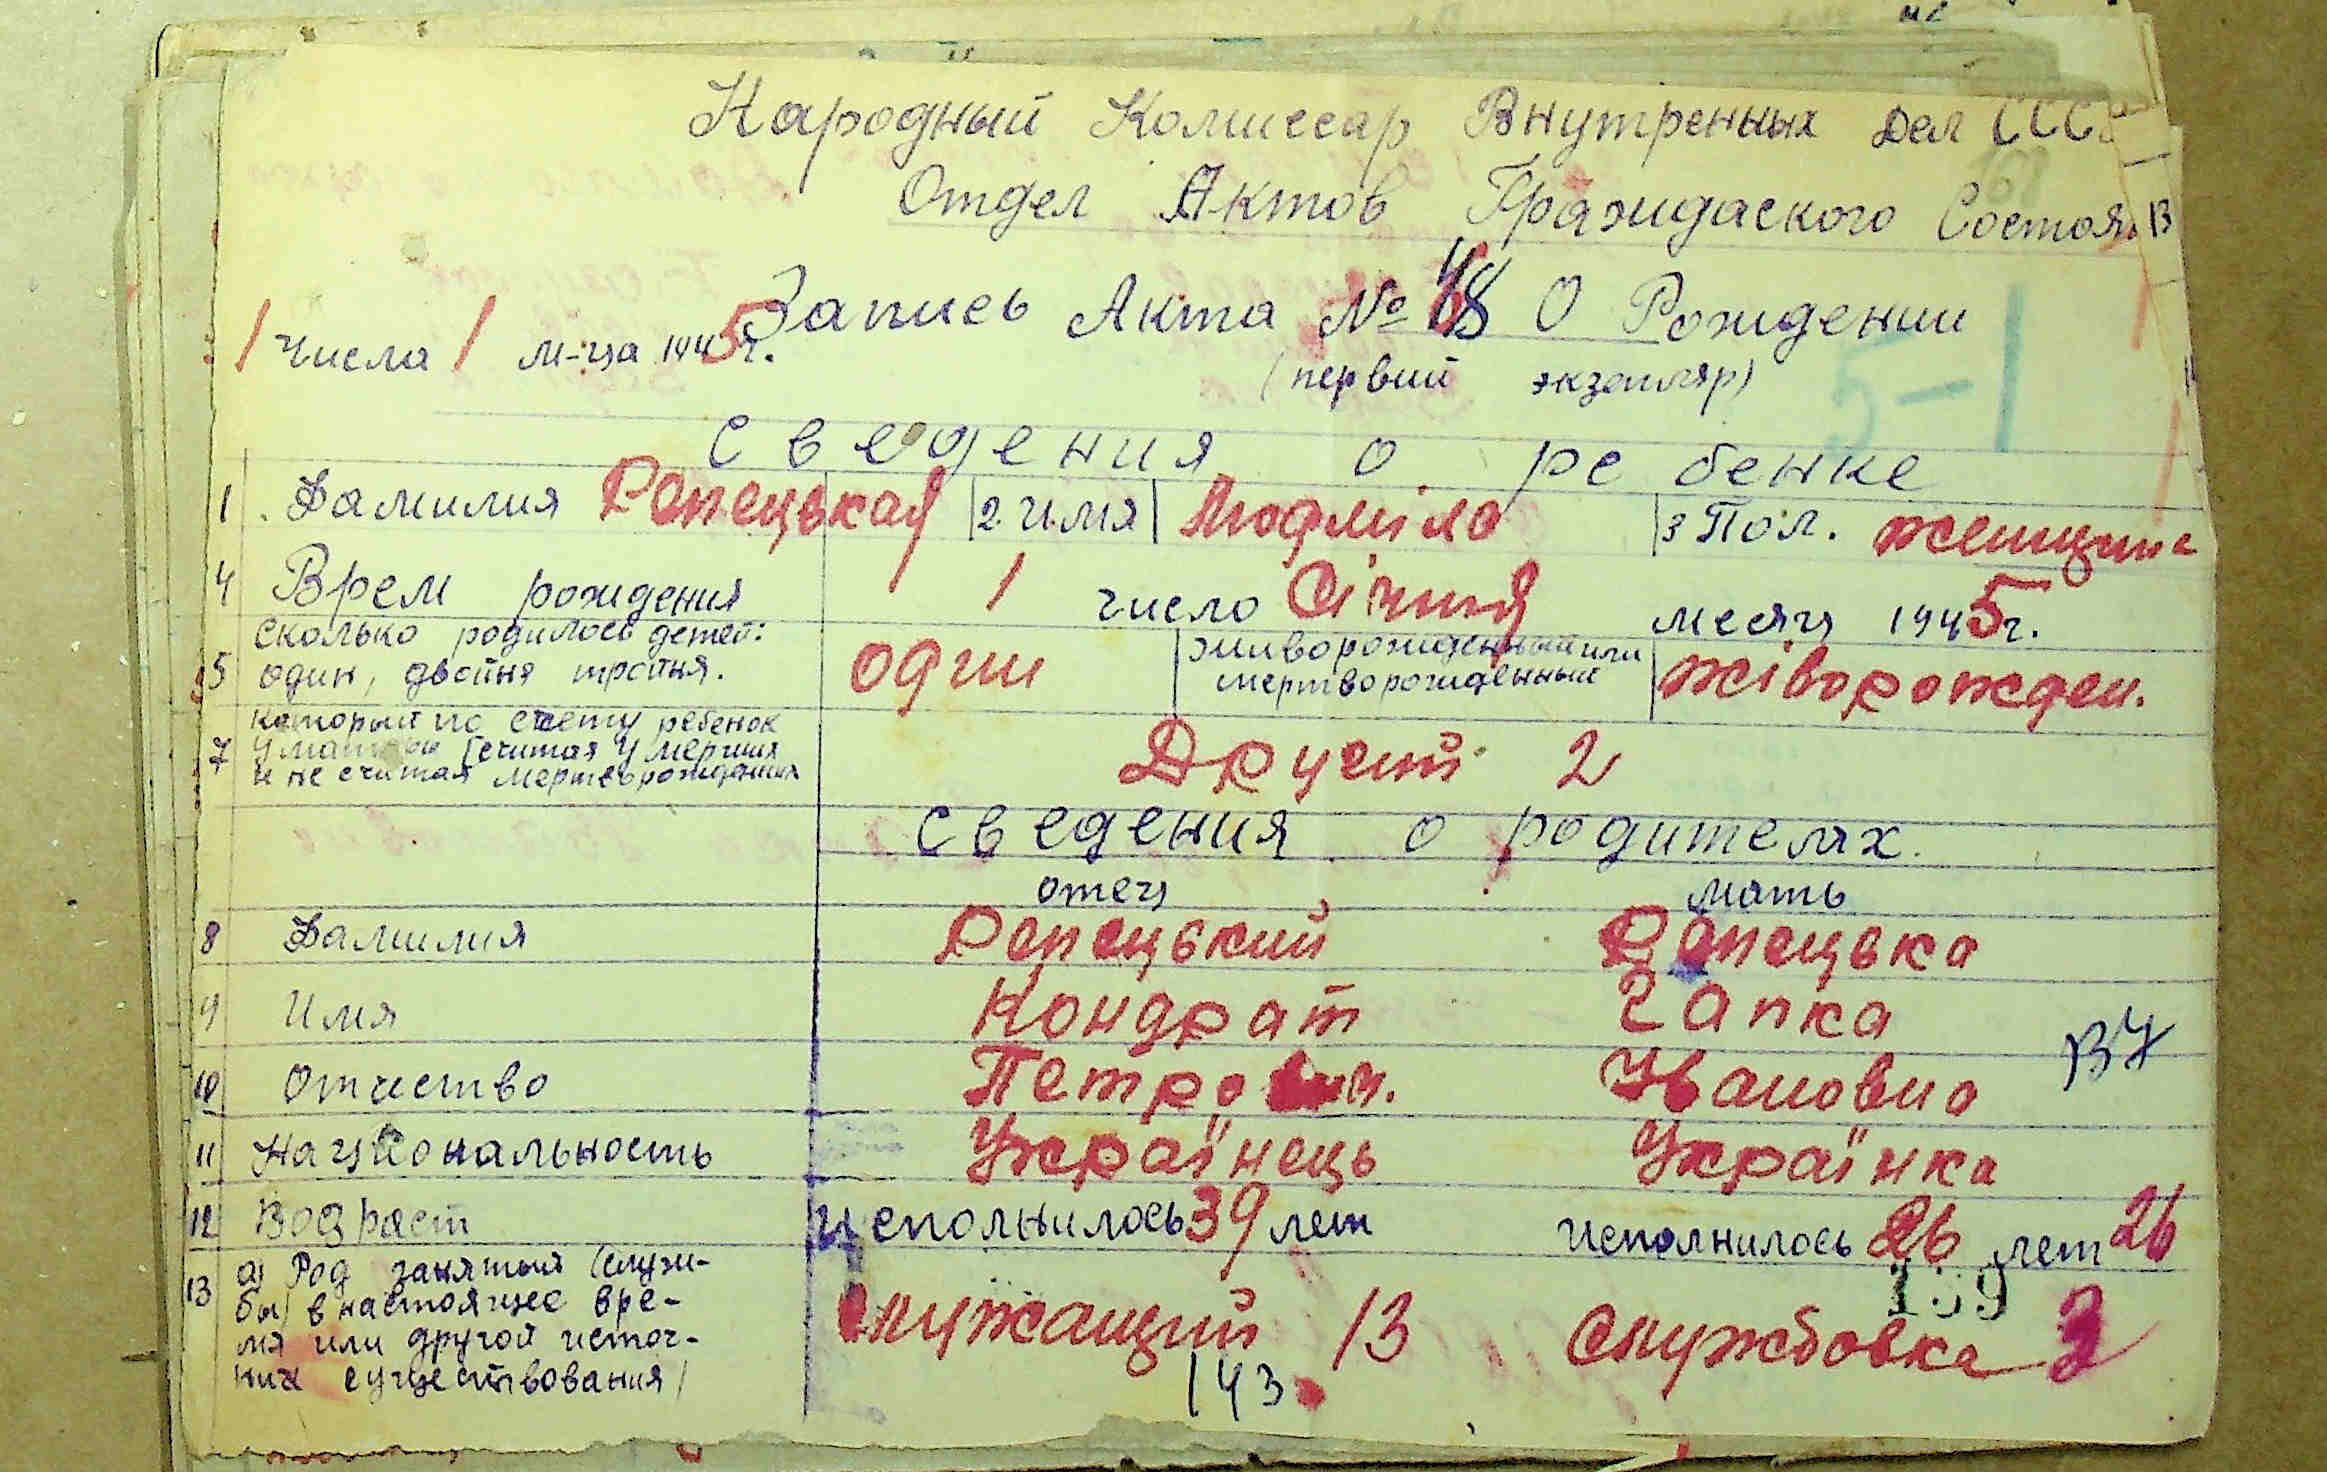 Народный Комиссар Внутренных Дел ССС
Отдел Актов Гражидаского Состоя
Запись Акта № О Рождении
1 числа 1 м-ца 1945 г.
(первий экземпляр)
5-1
Сведения о ребенке
1. Фамилия Репецькая 2. Имя Людміла 3 Пол. женщина
4 Врем рождения 1 число Січня месяц 1945 г.
5 сколько родилось детей: один, двойня тройня. Один живворожиденный или мертворожиденный жіворожден.
7 который по счету ребенок у матери (считая умерших и не считая мертворожидених Другий 2
Сведения о родителях.
отец мать
8 Фамилия Репецький Репецька
9 Имя Кондрат Ганка
10 Отчество Петрович. Ивановна
В7
11 Национальность Українець Українка
12 Воздраст исполнилось 39 лет исполнилось 26 лет 26
139
13 а) Род занятый (служи-
бы) в настоящее вре-
мя или другой источ-
ник существования) Служащий 13 Службовка 3
143